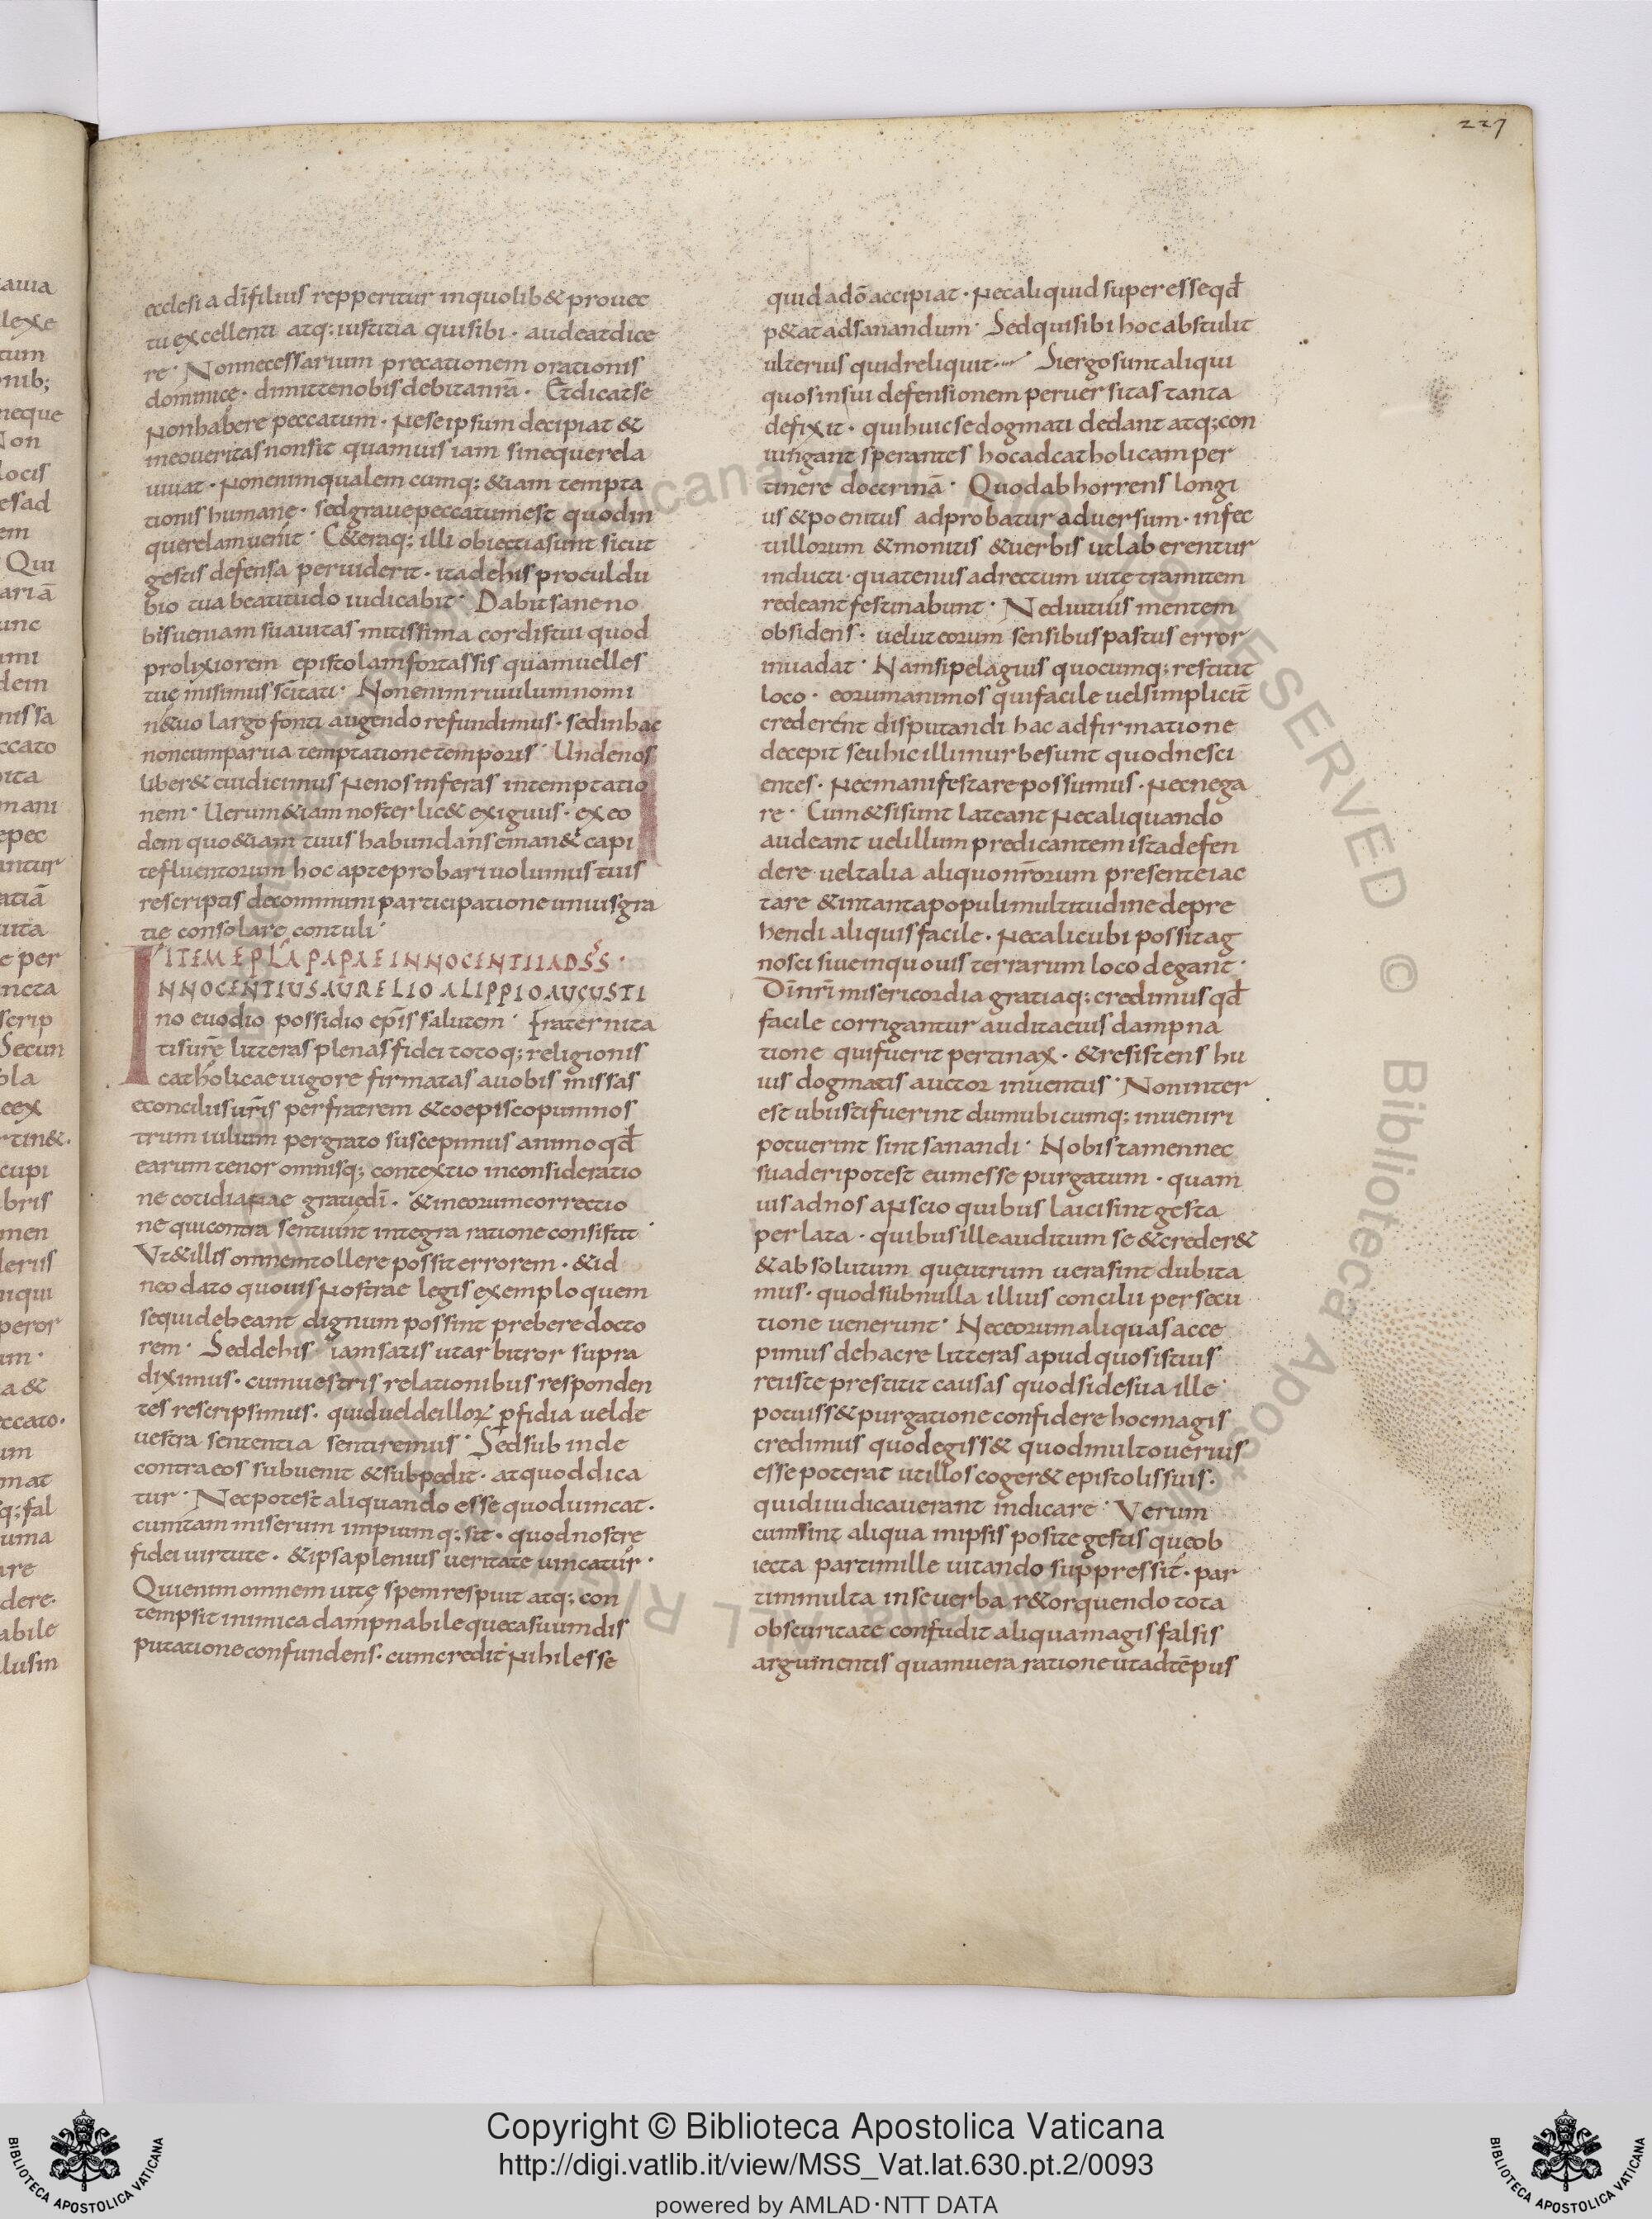 227
ecclesia dīfilius repperitur inquolib& prouec
tu excellenti atq; iustitia quisibi · audeatdice
re · Nonnecessarium precationem orationis
dominice · dimittenobisdebitanrā · Etdicatse
nonhabere peccatum · neseipsumdecipiat &
ineoueritasnonsit quamuis iam sinequerela
uiuat · nonenimqualem cumq; &iam tempta
tionis humanę · sedgrauepeccatumest quodin
querelamuenit · C&eraq; illi obiectiasunt sicut
gestis defensa peruiderit · itadehis proculdu
bio tua beatitudo iudicabit · Dabitsaneno
bisueniam suauitas mitissima cordistui quod
prolixiorem epistolamfortassis quamuelles
tuę misimus scītati · Nonenimriuulumnomi
n&uo largo fonti augendo refundimus · sedinhac
noncumparua temptatione temporis · Undenos
liber& cuidicimus nenosinferas intemptatio
nem · Uerum&iam noster lic& exiguus · exeo
dem quo&iam tuus habundans eman& capi
tefluentorum hoc apteprobariuolumus tuis
rescriptis decommuni participationeuniusgra
tie consolare contuli ·
ITEM EPLA PAPAE INNOCENTII AD SS ·
INNOCENTIUS AURELIO ALIPPIO AUGUSTI
no euodio possidio epīs salutem · Fraternita
tisurē litteras plenas fidei totoq; religionis
catholicaeuigore firmatas auobis missas
econciliisurīs perfratrem &coepiscopumnos
trum iulium pergrato suscepimus animo qđ
earum tenor omnisq; contextio inconsideratio
ne cotidianae gratiedī · &ineorumcorrectio
ne quicontra sentiunt integra ratione consistit ·
Ut&illis omnemtollere possit errorem · &id
neo dato quouis nostrae legis exemplo quem
sequidebeant dignum possint prebere docto
rem · Seddehis iamsatis utarbitror supra
diximus · cumuestris relationibus responden
tes rescripsimus · quidueldeilloꝝ pfidia uelde
uestra sententia sentiremus · Sedsub inde
contraeos subuenit &subpedit · atquoddica
tur · Necpotest aliquando esse quoduincat ·
cumtam miserum impiumq; sit · quodnostre
fidei uirtute · &ipsaplenius ueritate uincatur ·
Quienimomnem uitę spemrespuit atq; con
tempsit inimica dampnabilequetasuumdis
putatione confundens · cumcredit nihilesse
quidadō accipiat · necaliquid superesse qđ
p&atadsanandum · Sedquisibi hoc abstulit
ulterius quidreliquit · Siergosuntaliqui
quosinsui defensionem peruersitas tanta
defixit · quihuicsedogmati dedant atq; con
iungant sperantes hocadcatholicamper
tinere doctrinā · Quodabhorrens longi
us &poenitus adprobatur aduersum · infec
tiillorum &monitis &uerbis utlaberentur
inducti · quatenus adrectum uite tramitem
redeant festinabunt · Nediutius mentem
obsidens · uelut eorum sensibus pastus error
inuadat · Namsipelagius quocumq; restitit
loco · eorumanimos quifacile uelsimplicit̄
crederent disputandi hac adfirmatione
decepit seuhicillinurbesunt quodnesci
entes · necmanifestarepossumus · necnega
re · Cum&sisunt lateant necaliquando
audeant uelillum predicantem istadefen
dere ueltalia aliquonr̄orum presenteiac
tare &intantapopulimultitudine depre
hendi aliquis facile · necalicubi possitag
nosci siueinquouis terrarum loco degant ·
Dīnrī misericordia gratiaq; credimus qđ
facile corrigantur auditaeius dampna
tione quifuerit pertinax · &resistens hu
ius dogmatis auctor inuentus · Noninter
est ubiistifuerint dumubicumq; inueniri
potuerint sint sanandi · Nobistamennec
suaderipotest eumesse purgatum · quam
uisadnos anscio quibus laicisintgesta
perlata · quibusilleauditum se &creder&
&absolutum queutrum uerasint dubita
mus · quodsubnulla illius concilii persecu
tione uenerunt · Neceorumaliquasacce
pimus dehacre litteras apudquosistius
reiiste prestitit causas quodsidesua ille
potuiss& purgatione confidere hocmagis
credimus quodegiss& quodmultouerius
esse poterat utillos coger& epistolissuis ·
quidiudicauerant indicare · Verum
cumsint aliqua inipsis posite gestis queob
iecta partimille uitando suppressit · par
timmulta inseuerba r&orquendo tota
obscuritate confudit aliquamagisfalsis
argumentis quamuera ratione utadtēpus
ALL RIGHTS RESERVED © Biblioteca Apostolica Vaticana
Copyright © Biblioteca Apostolica Vaticana
http://digi.vatlib.it/view/MSS_Vat.lat.630.pt.2/0093
powered by AMLAD·NTT DATA
BIBLIOTECA APOSTOLICA VATICANA
BIBLIOTECA APOSTOLICA VATICANA